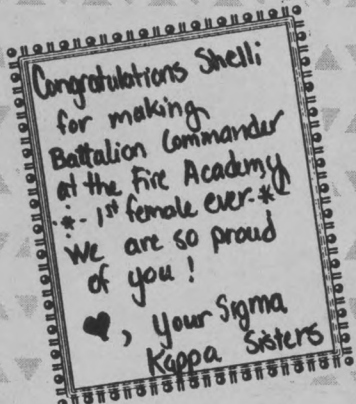 Congratulations Shelli
for making
Battalion Commander
at the Fire Academy
*- 1st female ever-*
We are so proud
of you!
♥, your Sigma
Kappa Sisters